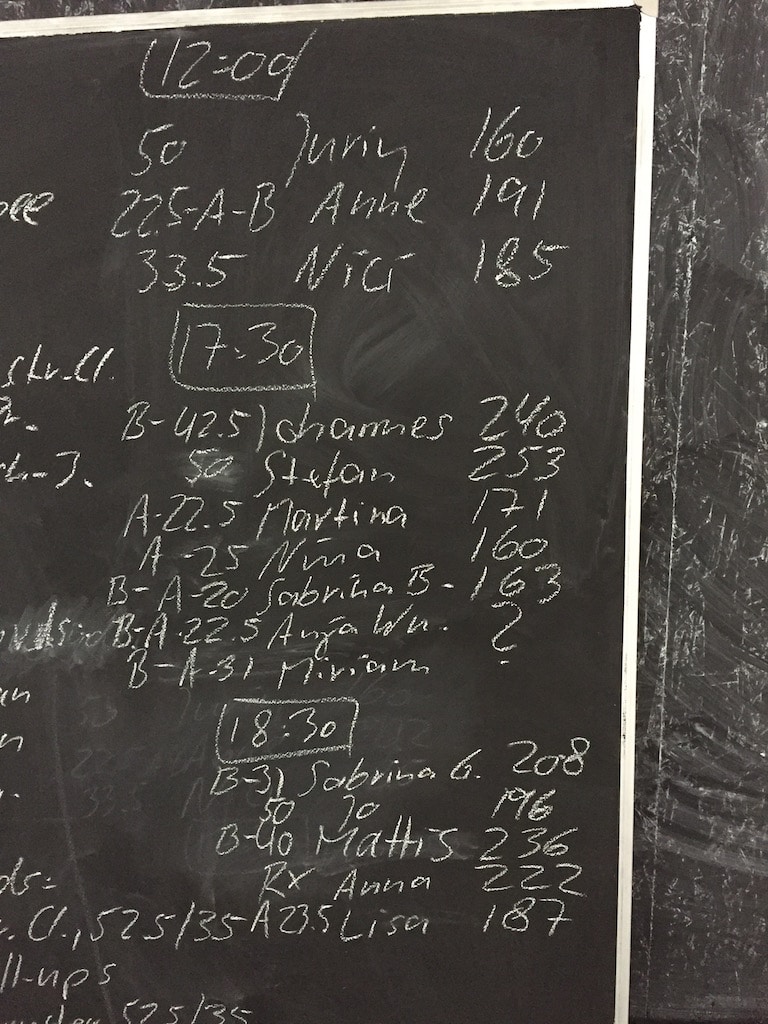 12:00
50 Juriy 160
22.5-A-B Anne 191
33.5 Nici 185
17:30
str.Cl.
B-42.5 Johannes 240
50 Stefan 253
A-22.5 Martina 171
A-25 Nina 160
B-A-20 Sabrina B- 163
B-A-22.5 Anja Wu. ?
B-A-31 Miriam
18:30
B-31 Sabrina G. 208
50 Jo 196
B-40 Mattis 236
Rx Anna 222
Cl., 52.5/35 A23.5 Lisa 187
ll-ups
52.5/35